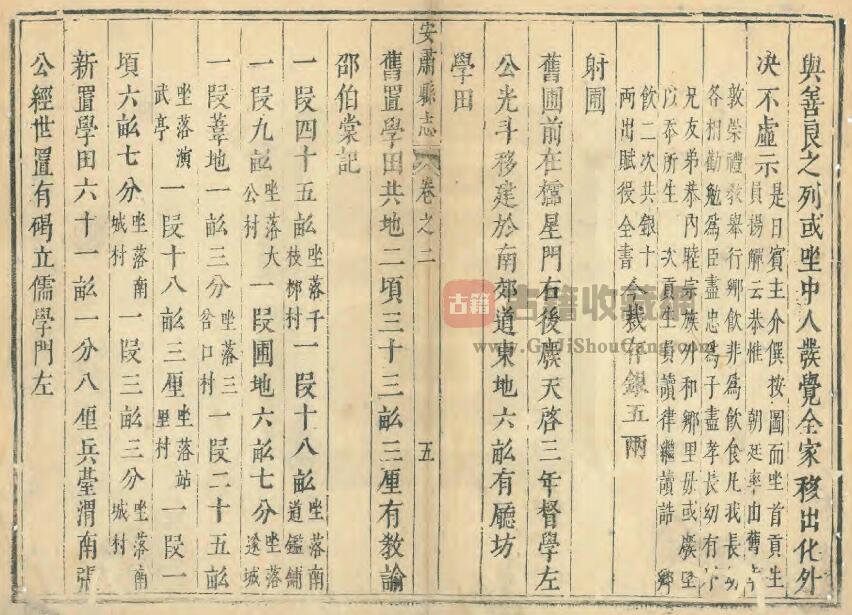 與善良之列或坐中人發覺全家移出化外
决不虛示是日賓主介僎按圖而坐首貢生
員揚觶云恭惟　朝廷率由舊
敦崇禮教舉行鄉飲非為飲食凡我長幼
各相勸勉為臣盡忠為子盡孝長幼有
兄友弟恭內睦宗族外和鄉里毋或廢墜
以忝所生　次貢生員讀律繼讀誥　鄉
飲二次共銀十
兩出賦役全書今裁存銀五兩
射圃
舊圃前在櫺星門右後廢天啓三年督學左
公光斗移建於南郊道東地六畝有廳坊
學田
安肅縣志　卷之二　五
舊置學田共地二頃三十三畝三厘有教諭
邵伯棠記
一段四十五畝坐落千枝柳村一段十八畝坐落南道鑑鋪
一段九畝坐落大公村一段圃地六畝七分坐落遂城
一段葦地一畝三分坐落三岔口村一段二十五畝
坐落演武亭一段十八畝三厘坐落站里村一段一
頃六畝七分坐落南城村一段三畝三分坐落南城村
新置學田六十一畝一分八厘兵臺渭南張
公經世置有碣立儒學門左
古籍
古籍收藏網
www.GuJiShouCang.com